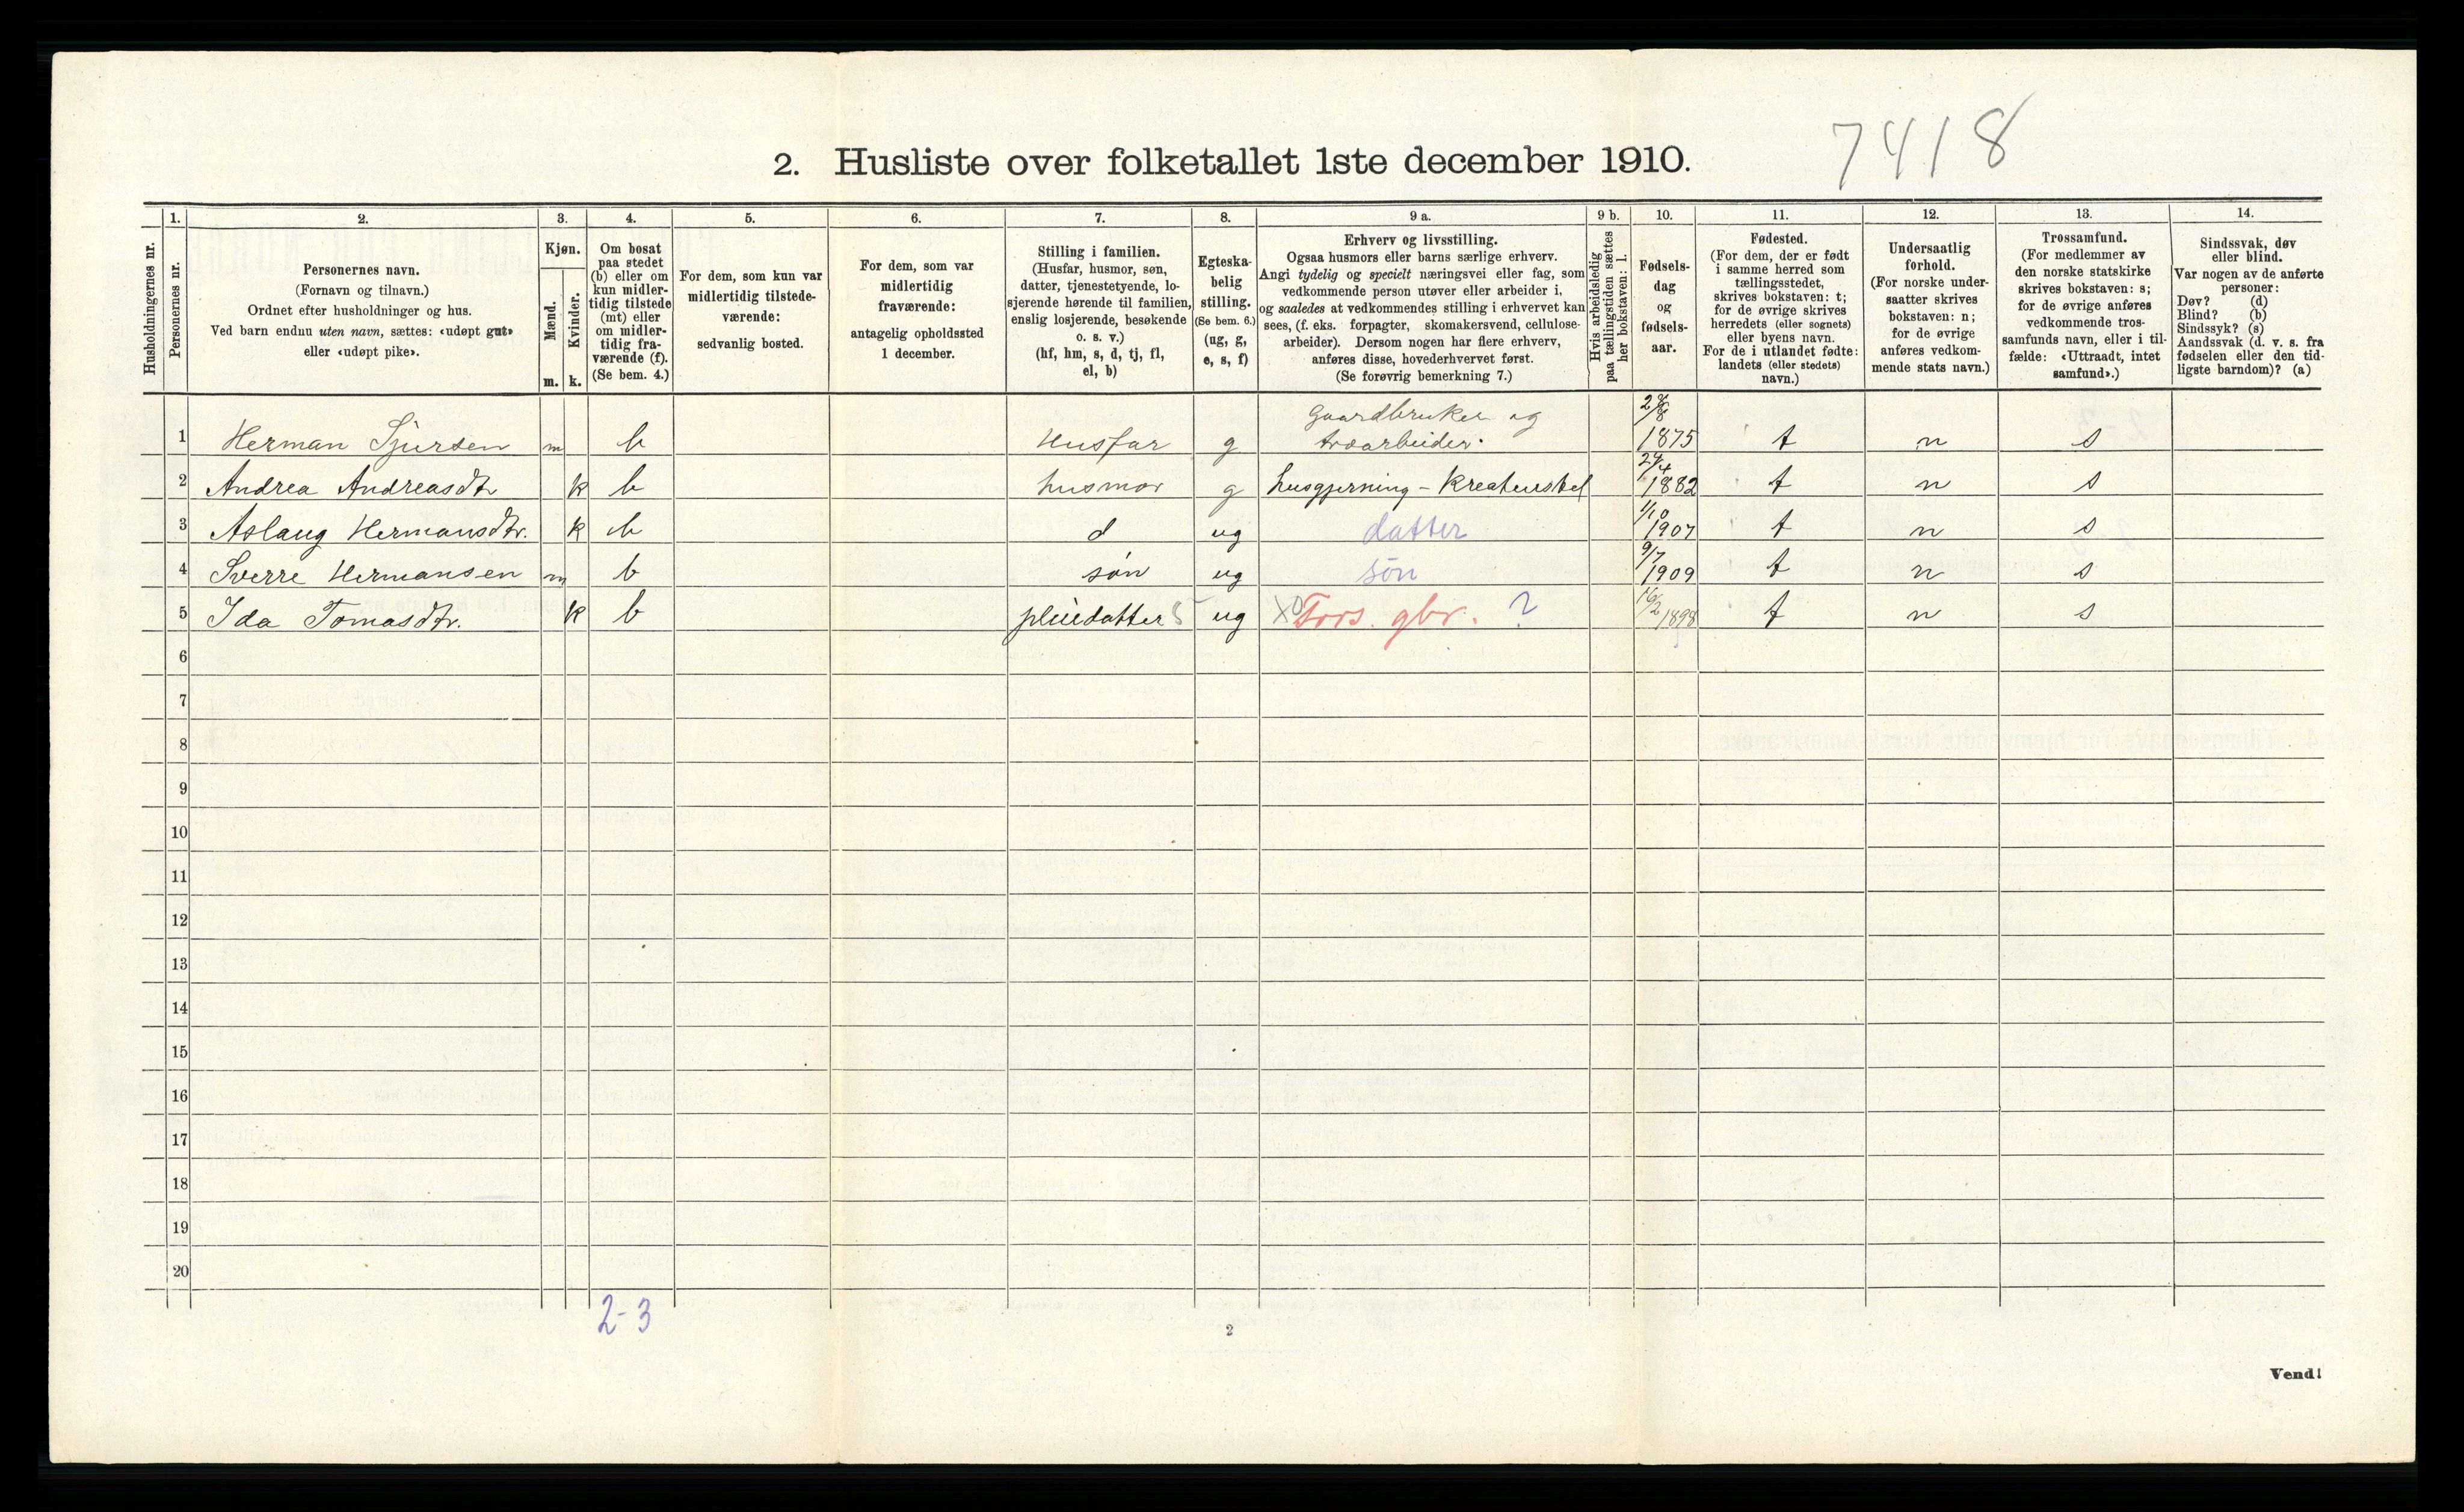 7418
2. Husliste over folketallet 1ste december 1910.
Husholdningernes nr.
1.
Personernes nr.
2.
Personernes navn.
(Fornavn og tilnavn.)
Ordnet efter husholdninger og hus.
Ved barn endnu uten navn, sættes: «udøpt gut»
eller «udøpt pike».
3.
Kjøn.
Mænd.
Kvinder.
m. k.
4.
Om bosat
paa stedet
(b) eller om
kun midler-
tidig tilstede
(mt) eller
om midler-
tidig fra-
værende (f).
(Se bem. 4.)
5.
For dem, som kun var
midlertidig tilstede-
værende:
sedvanlig bosted.
6.
For dem, som var
midlertidig
fraværende:
antagelig opholdssted
1 december.
7.
Stilling i familien.
(Husfar, husmor, søn,
datter, tjenestetyende, lo-
sjerende hørende til familien,
enslig losjerende, besøkende
o. s. v.)
(hf, hm, s, d, tj, fl,
el, b)
8.
Egteska-
belig
stilling.
(Se bem. 6.)
(ug, g,
e, s, f)
9 a.
Erhverv og livsstilling.
Ogsaa husmors eller barns særlige erhverv.
Angi tydelig og specielt næringsvei eller fag, som
vedkommende person utøver eller arbeider i,
og saaledes at vedkommendes stilling i erhvervet kan
sees, (f. eks. forpagter, skomakersvend, cellulose-
arbeider). Dersom nogen har flere erhverv,
anføres disse, hovederhvervet først.
(Se forøvrig bemerkning 7.)
9 b.
Hvis arbeidsledig
paa tællingstiden sættes
her bokstaven: l.
10.
Fødsels-
dag
og
fødsels-
aar.
11.
Fødested.
(For dem, der er født
i samme herred som
tællingsstedet,
skrives bokstaven: t;
for de øvrige skrives
herredets (eller sognets)
eller byens navn.
For de i utlandet fødte:
landets (eller stedets)
navn.)
12.
Undersaatlig
forhold.
(For norske under-
saatter skrives
bokstaven: n;
for de øvrige
anføres vedkom-
mende stats navn.)
13.
Trossamfund.
(For medlemmer av
den norske statskirke
skrives bokstaven: s;
for de øvrige anføres
vedkommende tros-
samfunds navn, eller i til-
fælde: «Uttraadt, intet
samfund».)
14.
Sindssvak, døv
eller blind.
Var nogen av de anførte
personer:
Døv? (d)
Blind? (b)
Sindssyk? (s)
Aandssvak (d. v. s. fra
fødselen eller den tid-
ligste barndom)? (a)
1 Herman Sjursen m b Husfar g gaardbruker og træarbeider. 1875 t n s
2 Andrea Andreasdtr k b husmor g husgjerning - Kreaturstel 24/4 1882 t n s
3 Aslaug Hermansdtr. k b d ug datter 1/10 1907 t n s
4 Sverre Hermansen m b søn ug søn 9/7 1909 t n s
5 Ida Tomasdtr. k b pleiedatter ug Fors. gbr. ? 16/2 1898 t n s
6
7
8
9
10
11
12
13
14
15
16
17
18
19
20
2-3
2
Vend!